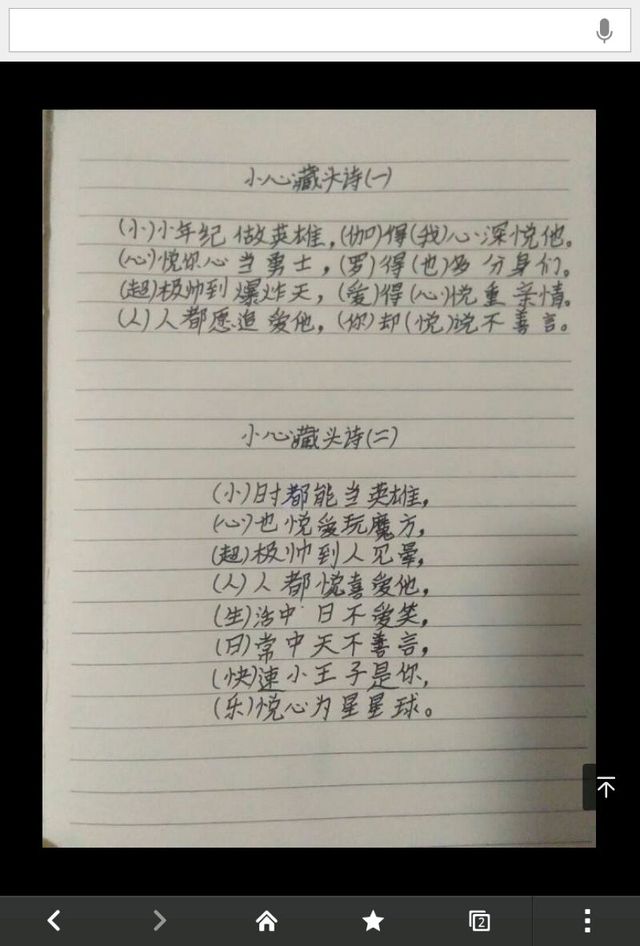 小心藏头诗(一)
(小)小年纪做英雄,(伽)得(我)心深悦他。
(心)悦你心当勇士,(罗)得(也)多分身们。
(超)极帅到爆炸天,(爱)得(心)悦重亲情。
(人)人都愿追爱他,(你)却(悦)说不善言。
小心藏头诗(二)
(小)时都能当英雄,
(心)也悦爱玩魔方,
(超)极帅到人见晕,
(人)人都慌喜爱他,
(生)活中日不爱笑,
(日)常中天不善言,
(快)速小王子是你,
(乐)悦心为星星球。
2